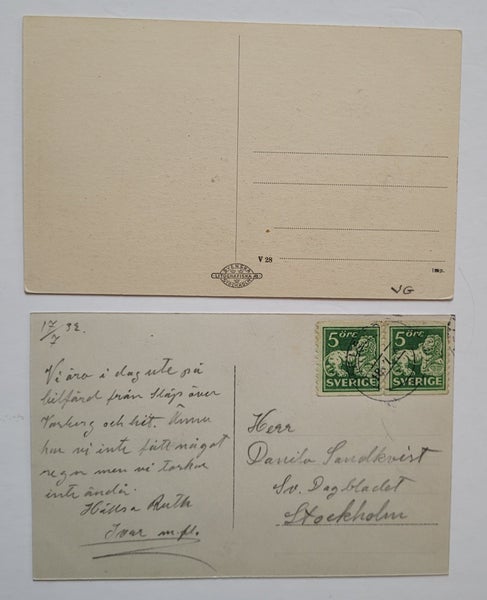 SVENSKA
LITOGRAFISKA AB
STOCKHOLM
V. 28
Imp.
VG
17/7 32.
Vi äro i dag ute på
bilfärd från Släps över
Varberg och hit. Ännu
har vi inte fått något
regn men vi torkar
inte ändå.
Hälsa Ruth
Ivar m.fl.
5 ÖRE
SVERIGE
5 ÖRE
SVERIGE
Herr
Danilo Sandkvist
Sv. Dagbladet
Stockholm